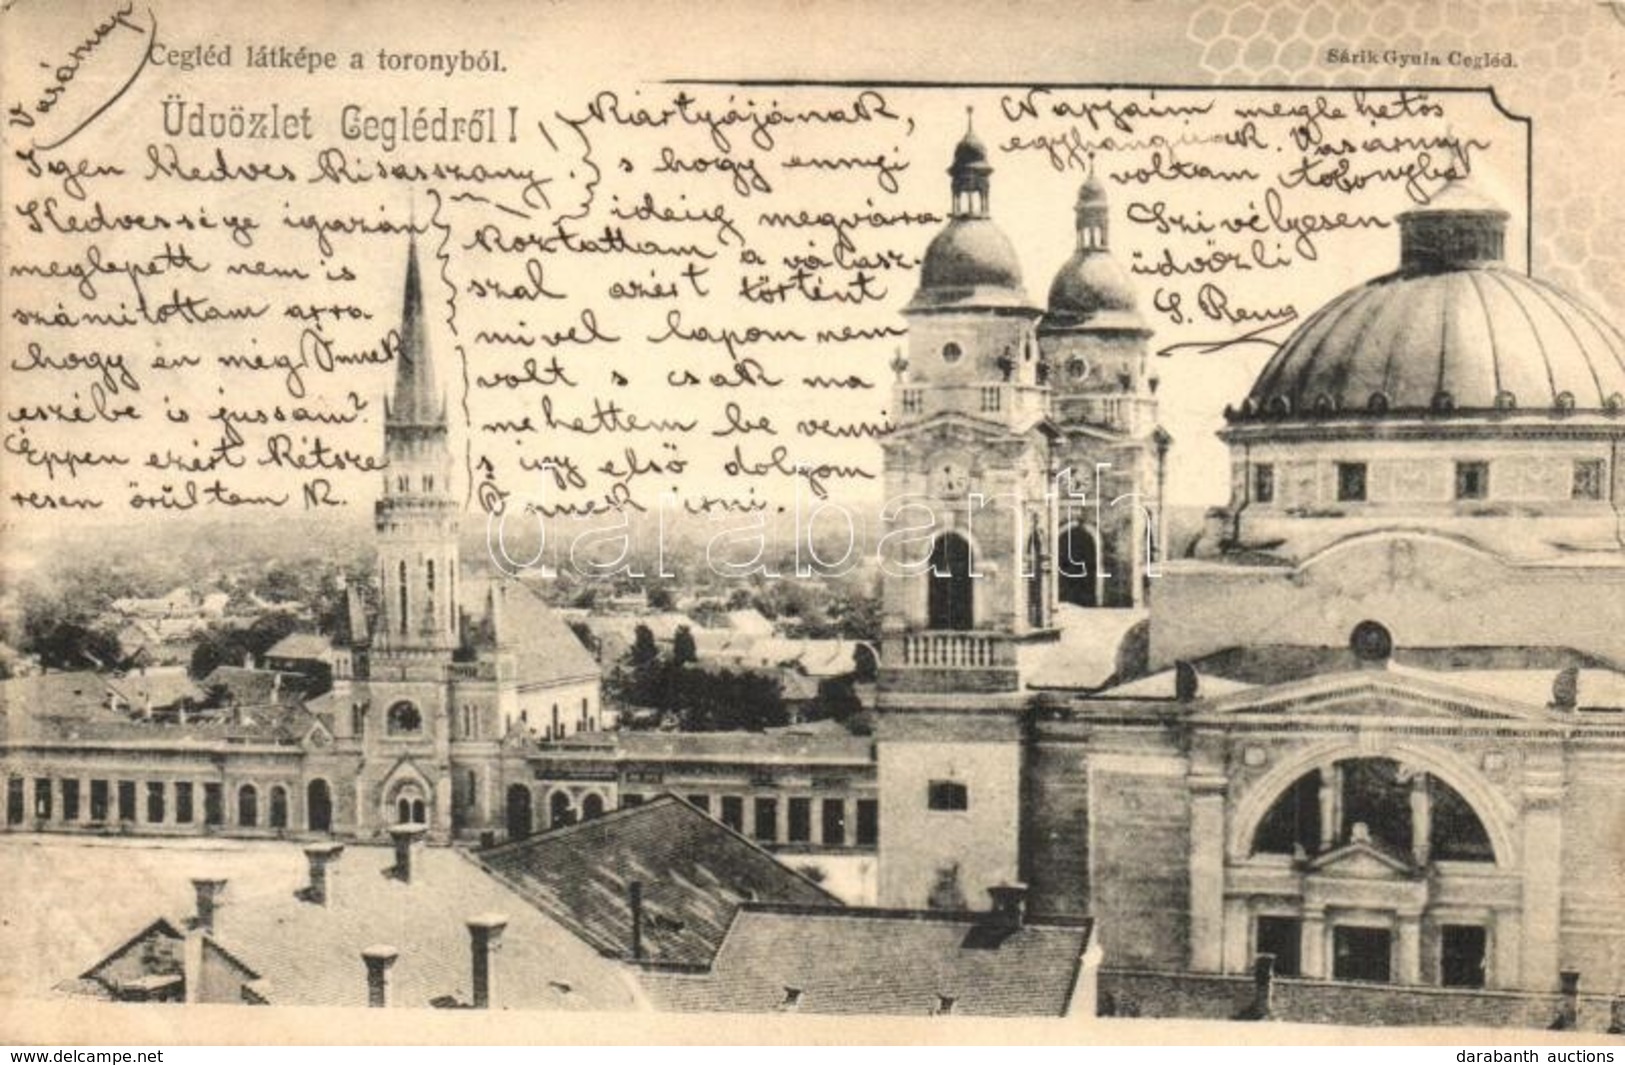 Vasárnap
Cegléd látképe a toronyból.
Sárik Gyula Cegléd.
Üdvözlet Ceglédről!
Igen Kedves Kisasszony.
Kedvessége igazán
meglepett nem is
számitottam arra
hogy én még Önnek
eszébe is jussam?
Éppen ezért Kétsze
resen örültem K.
Kártyájának,
s hogy ennyi
ideig megvára
Koztattam a válasz-
szal azért történt
mivel lapom nem
volt s csak ma
mehettem be venni
s igy első dolgom
Önnek irni.
Napjaim meglehetős
egyhangúak. Vasárnap
voltam
Szivélyesen
üdvözli
darabanth
www.akpool.com
darabanth auctions